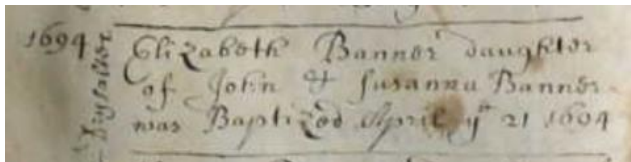 1694 Elizabeth Banner daughter
of John & Susanna Banner
was Baptized April ye 21 1694